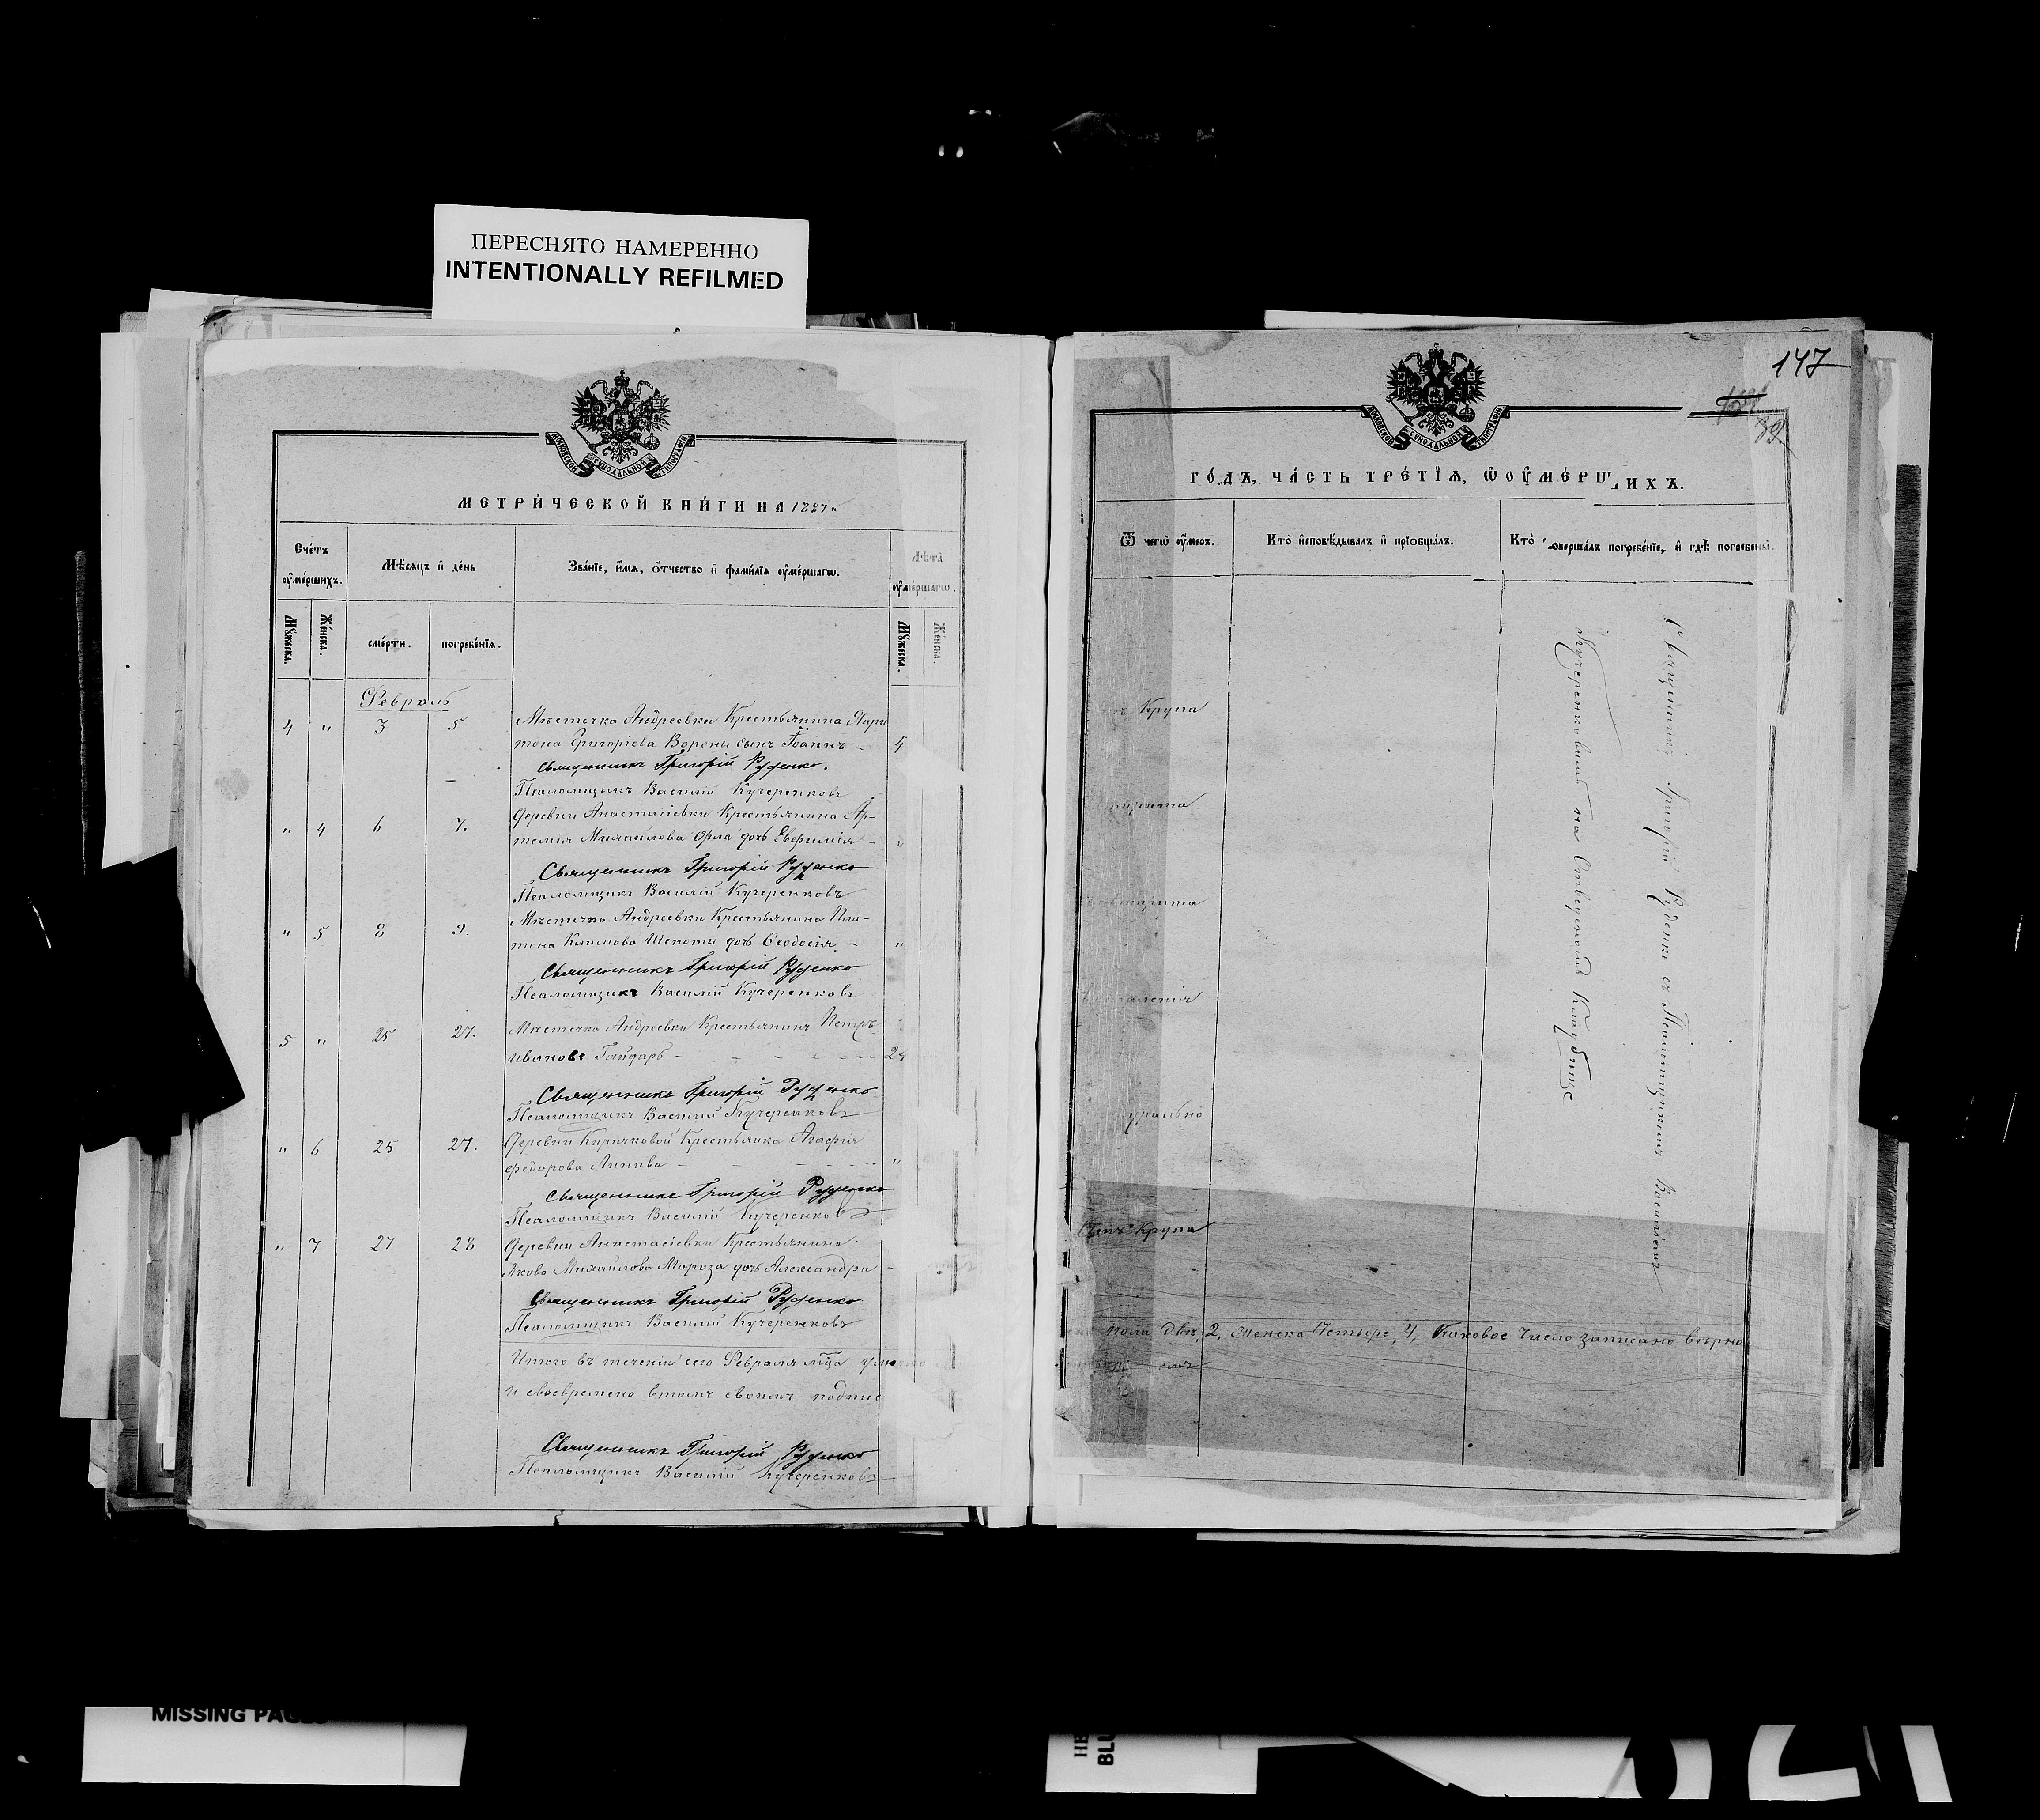 ПЕРЕСНЯТО НАМЕРЕННО
INTENTIONALLY REFILMED
МОСКОВСКОЙ СѴНОДАЛЬНОЙ ТИПОГРАФІИ
МЕТРИ́ЧЕСКОЙ КНИ́ГИ НА 1887
Сче́тъ ᲂу҆ме́ршихъ.
Мѣ́сяцъ и҆ де́нь
Зва́нїе, и҆́мя, ѻ҆́тчество и҆ фами́лїя ᲂу҆ме́ршагѡ.
Лѣ́та ᲂу҆ме́ршагѡ.
Мꙋ́жеска.
Же́нска.
сме́рти.
погребе́нїя.
Мꙋ́жеска.
Же́нска.
Февраль
4 " 3 5 Мѣстечка Андреевки Крестьянина Хари
тона Григорієва Ворони сынъ Іоаннъ - 4
Священникъ Григорій Руденко.
Псаломщикъ Василій Кучеренковъ
" 4 6 7. Деревни Анастасіевки Крестьянина Ар-
темія Михайлова Орла дочь Евфимія -
Священникъ Григорій Руденко
Псаломщикъ Василій Кучеренковъ
" 5 8 9. Мѣстечка Андреевки Крестьянина Пла-
тона Климова Шепоти дочь Ѳеодосія - "
Священникъ Григорій Руденко
Псаломщикъ Василій Кучеренковъ
5 " 25 27. Мѣстечка Андреевки Крестьянинъ Петръ
Ивановъ Гайдаръ -
Священникъ Григорій Руденко
Псаломщикъ Василій Кучеренковъ
" 6 25 27. Деревни Киричковой Крестьянка Агафія
Федорова - "
Священникъ Григорій Руденко
Псаломщикъ Василій Кучеренковъ
" 7 27 28 Деревни Анастасіевки Крестьянина
Якова Михайлова Мороза дочь Александра -
Священникъ Григорій Руденко
Псаломщикъ Василій Кучеренковъ
Итого въ теченіи сего Февраля мца
и своевременно въ томъ своимъ подпис
Священникъ Григорій Руденко
Псаломщикъ Василій Кучеренковъ
147
89
МОСКОВСКОЙ СѴНОДАЛЬНОЙ ТИПОГРАФІИ
ГО́ДЪ, ЧА́СТЬ ТРЕ́ТЇЯ, Ѡ ОУ҆МЕ́РШИХЪ.
Ѿ чегѡ̀ ᲂу҆́меръ.
Кто̀ и҆сповѣ́дывалъ и҆ прїобща́лъ.
Кто̀ соверша́лъ погребе́нїе, и҆ гдѣ̀ погребены̀.
Крупа
Крупа
Священникъ Григорій Руденко съ Псаломщикомъ Василіемъ
Кучеренковымъ на Отведеномъ Кладбище
пола два, 2, женска Четыре, 4, Каковое число записано вѣрно
MISSING PAGES